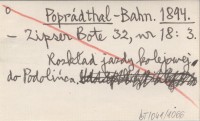 Poprádthal-Bahn. 1894.
- Zipser Bote 32, nr 18: 3.
Rozkład jazdy kolejowej
do Podolińca.